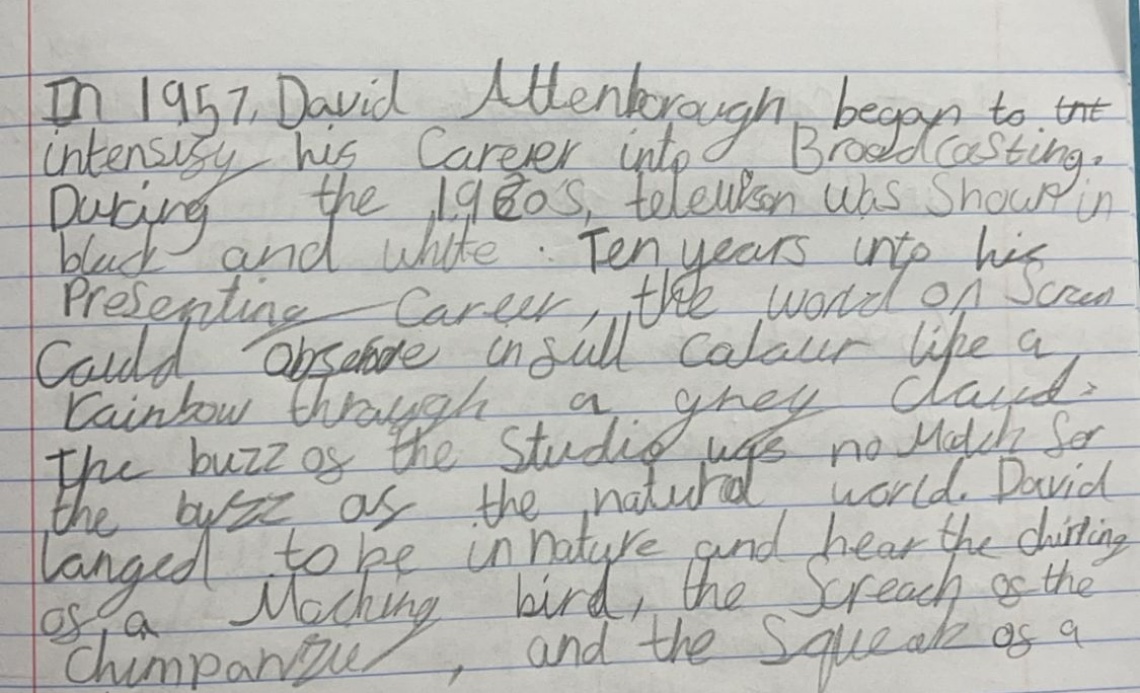 In 1957, David Attenborough began to int
intensify his Career into Broadcasting.
During the 1960s, television was Shown in
black and white. Ten years into his
Presenting Career, the world on Screen
Could observe in full colour like a
rainbow through a grey cloud.
The buzz of the Studio was no Match for
the buzz of the natural world. David
longed to be in nature and hear the chirping
of a Mocking bird, the Screach of the
Chimpanzee, and the Squeak of a